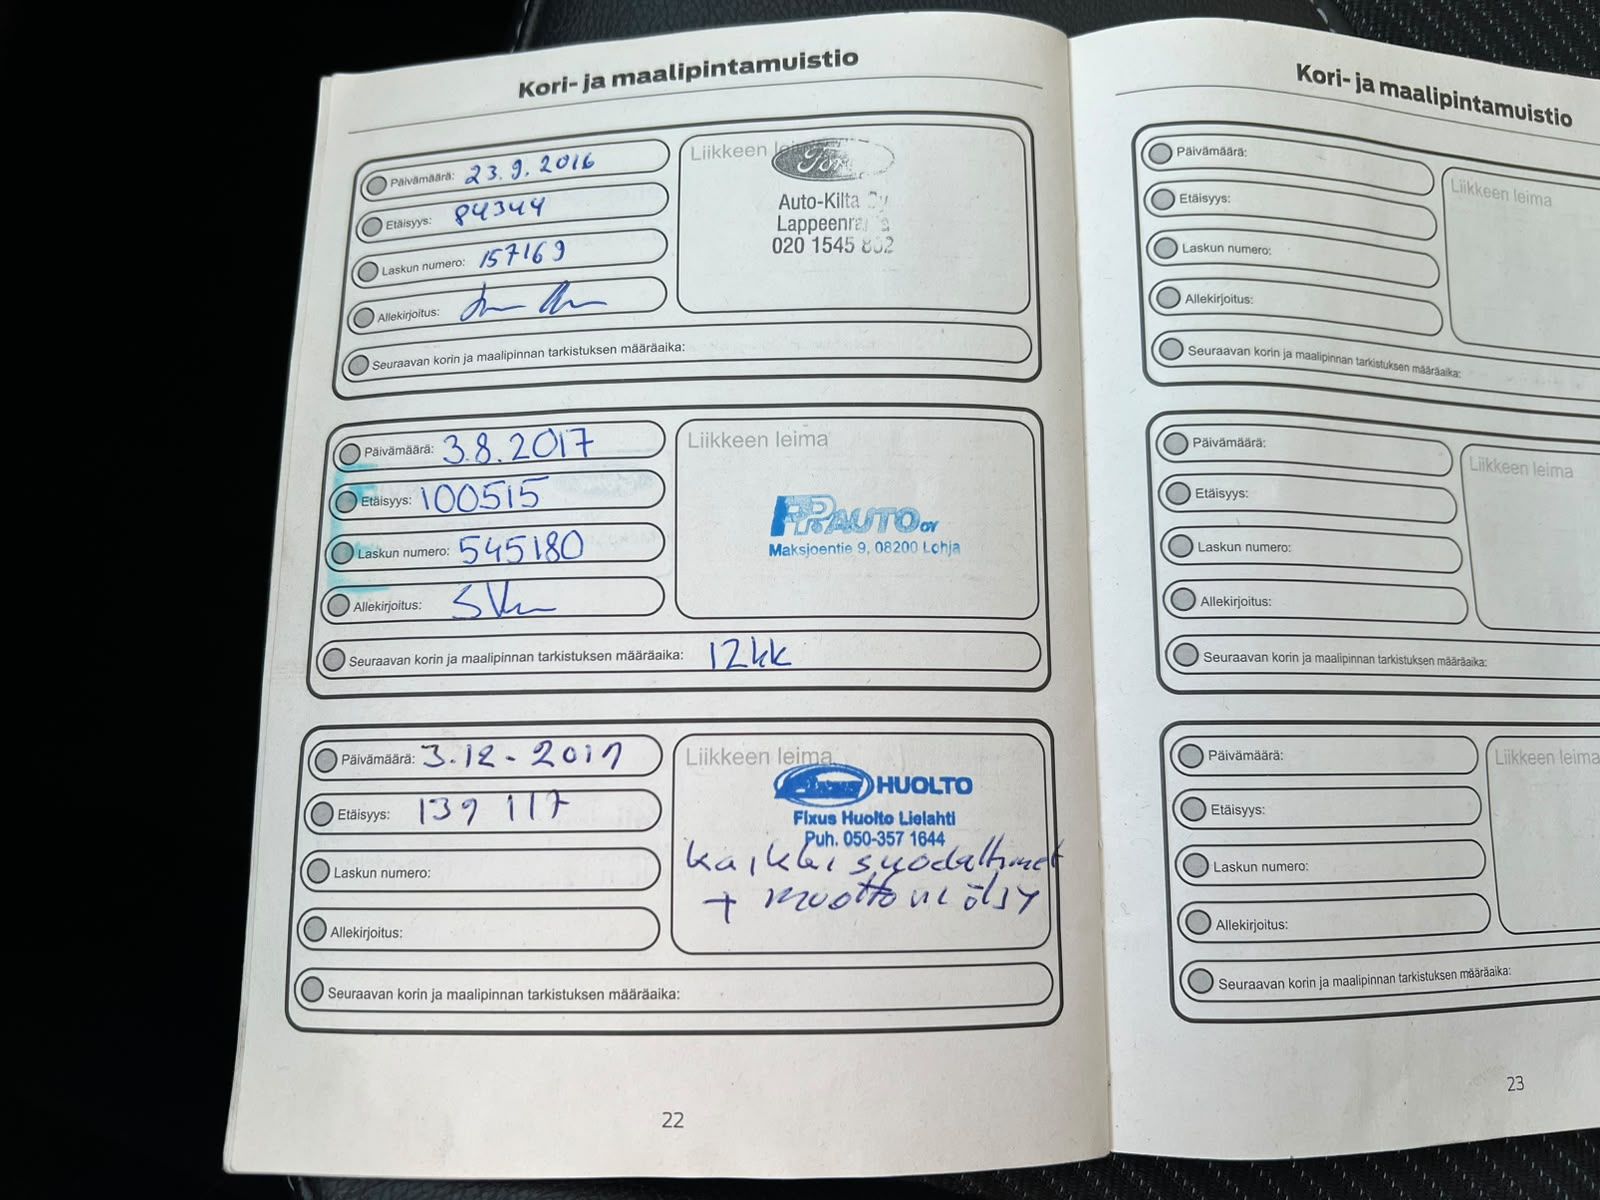 Kori- ja maalipintamuistio
Päivämäärä: 23.9.2016
Etäisyys: 84344
Laskun numero: 157169
Allekirjoitus:
Seuraavan korin ja maalipinnan tarkistuksen määräaika:
Liikkeen leima
Ford
Auto-Kilta Oy
Lappeenranta
020 1545 802
Päivämäärä: 3.8.2017
Etäisyys: 100515
Laskun numero: 545180
Allekirjoitus:
Seuraavan korin ja maalipinnan tarkistuksen määräaika: 12kk
Liikkeen leima
PPAUTO OY
Maksjoentie 9, 08200 Lohja
Päivämäärä: 3.12-2019
Etäisyys: 139 117
Laskun numero:
Allekirjoitus:
Seuraavan korin ja maalipinnan tarkistuksen määräaika:
Liikkeen leima
Fixus HUOLTO
Fixus Huolto Lielahti
Puh. 050-357 1644
Kaikki suodattimet
+ moottoriöljy
22
Kori- ja maalipintamuistio
Päivämäärä:
Etäisyys:
Laskun numero:
Allekirjoitus:
Seuraavan korin ja maalipinnan tarkistuksen määräaika:
Liikkeen leima
Päivämäärä:
Etäisyys:
Laskun numero:
Allekirjoitus:
Seuraavan korin ja maalipinnan tarkistuksen määräaika:
Liikkeen leima
Päivämäärä:
Etäisyys:
Laskun numero:
Allekirjoitus:
Seuraavan korin ja maalipinnan tarkistuksen määräaika:
Liikkeen leima
23